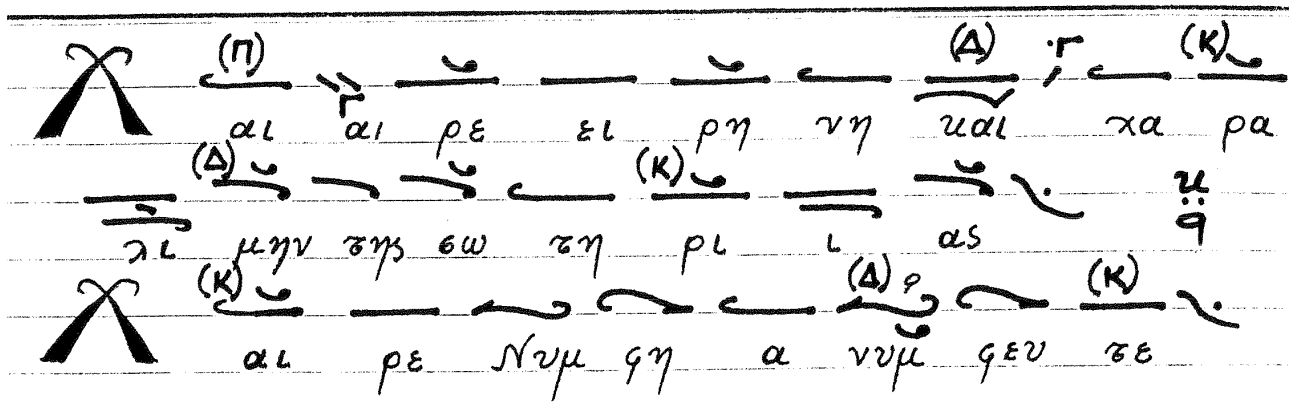 (Π) (Δ) Γ (Κ)
Γ
Χ αι αι ρε ει ρη νη και χα ρα
(Δ) (Κ)
λι μην της σω τη ρι ι ας
(Κ) (Δ) (Κ)
Χ αι ρε Νυμ φη α νυμ φευ τε